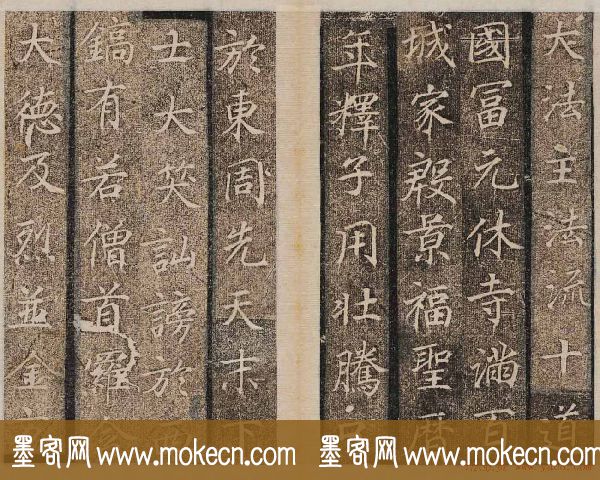 大法主法流十道
國冨元休寺滿百
城家殷景福聖曆
年釋子用壯騰
於東周先天末下
士大笑訕謗於西
鎬有若僧首羅
大德及烈並金
墨客网 www.mokecn.com 墨客网 www.mokecn.com